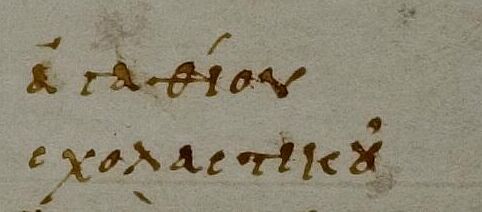 ἀγαθίου
σχολαστικοῦ